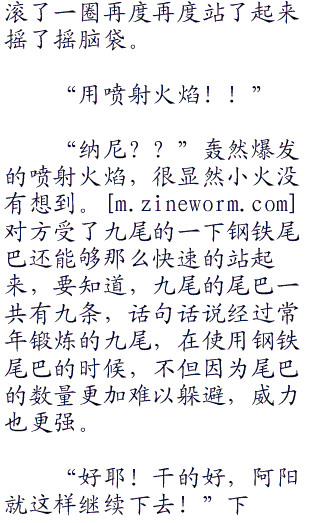 滚了一圈再度再度站了起来
摇了摇脑袋。
“用喷射火焰！！”
“纳尼？？”轰然爆发
的喷射火焰，很显然小火没
有想到。[m.zineworm.com]
对方受了九尾的一下钢铁尾
巴还能够那么快速的站起
来，要知道，九尾的尾巴一
共有九条，话句话说经过常
年锻炼的九尾，在使用钢铁
尾巴的时候，不但因为尾巴
的数量更加难以躲避，威力
也更强。
“好耶！干的好，阿阳
就这样继续下去！”下